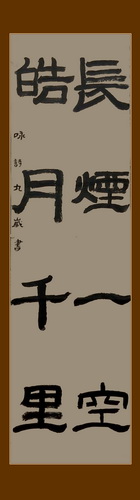 長煙一空
皓月千里
咏許九歲書